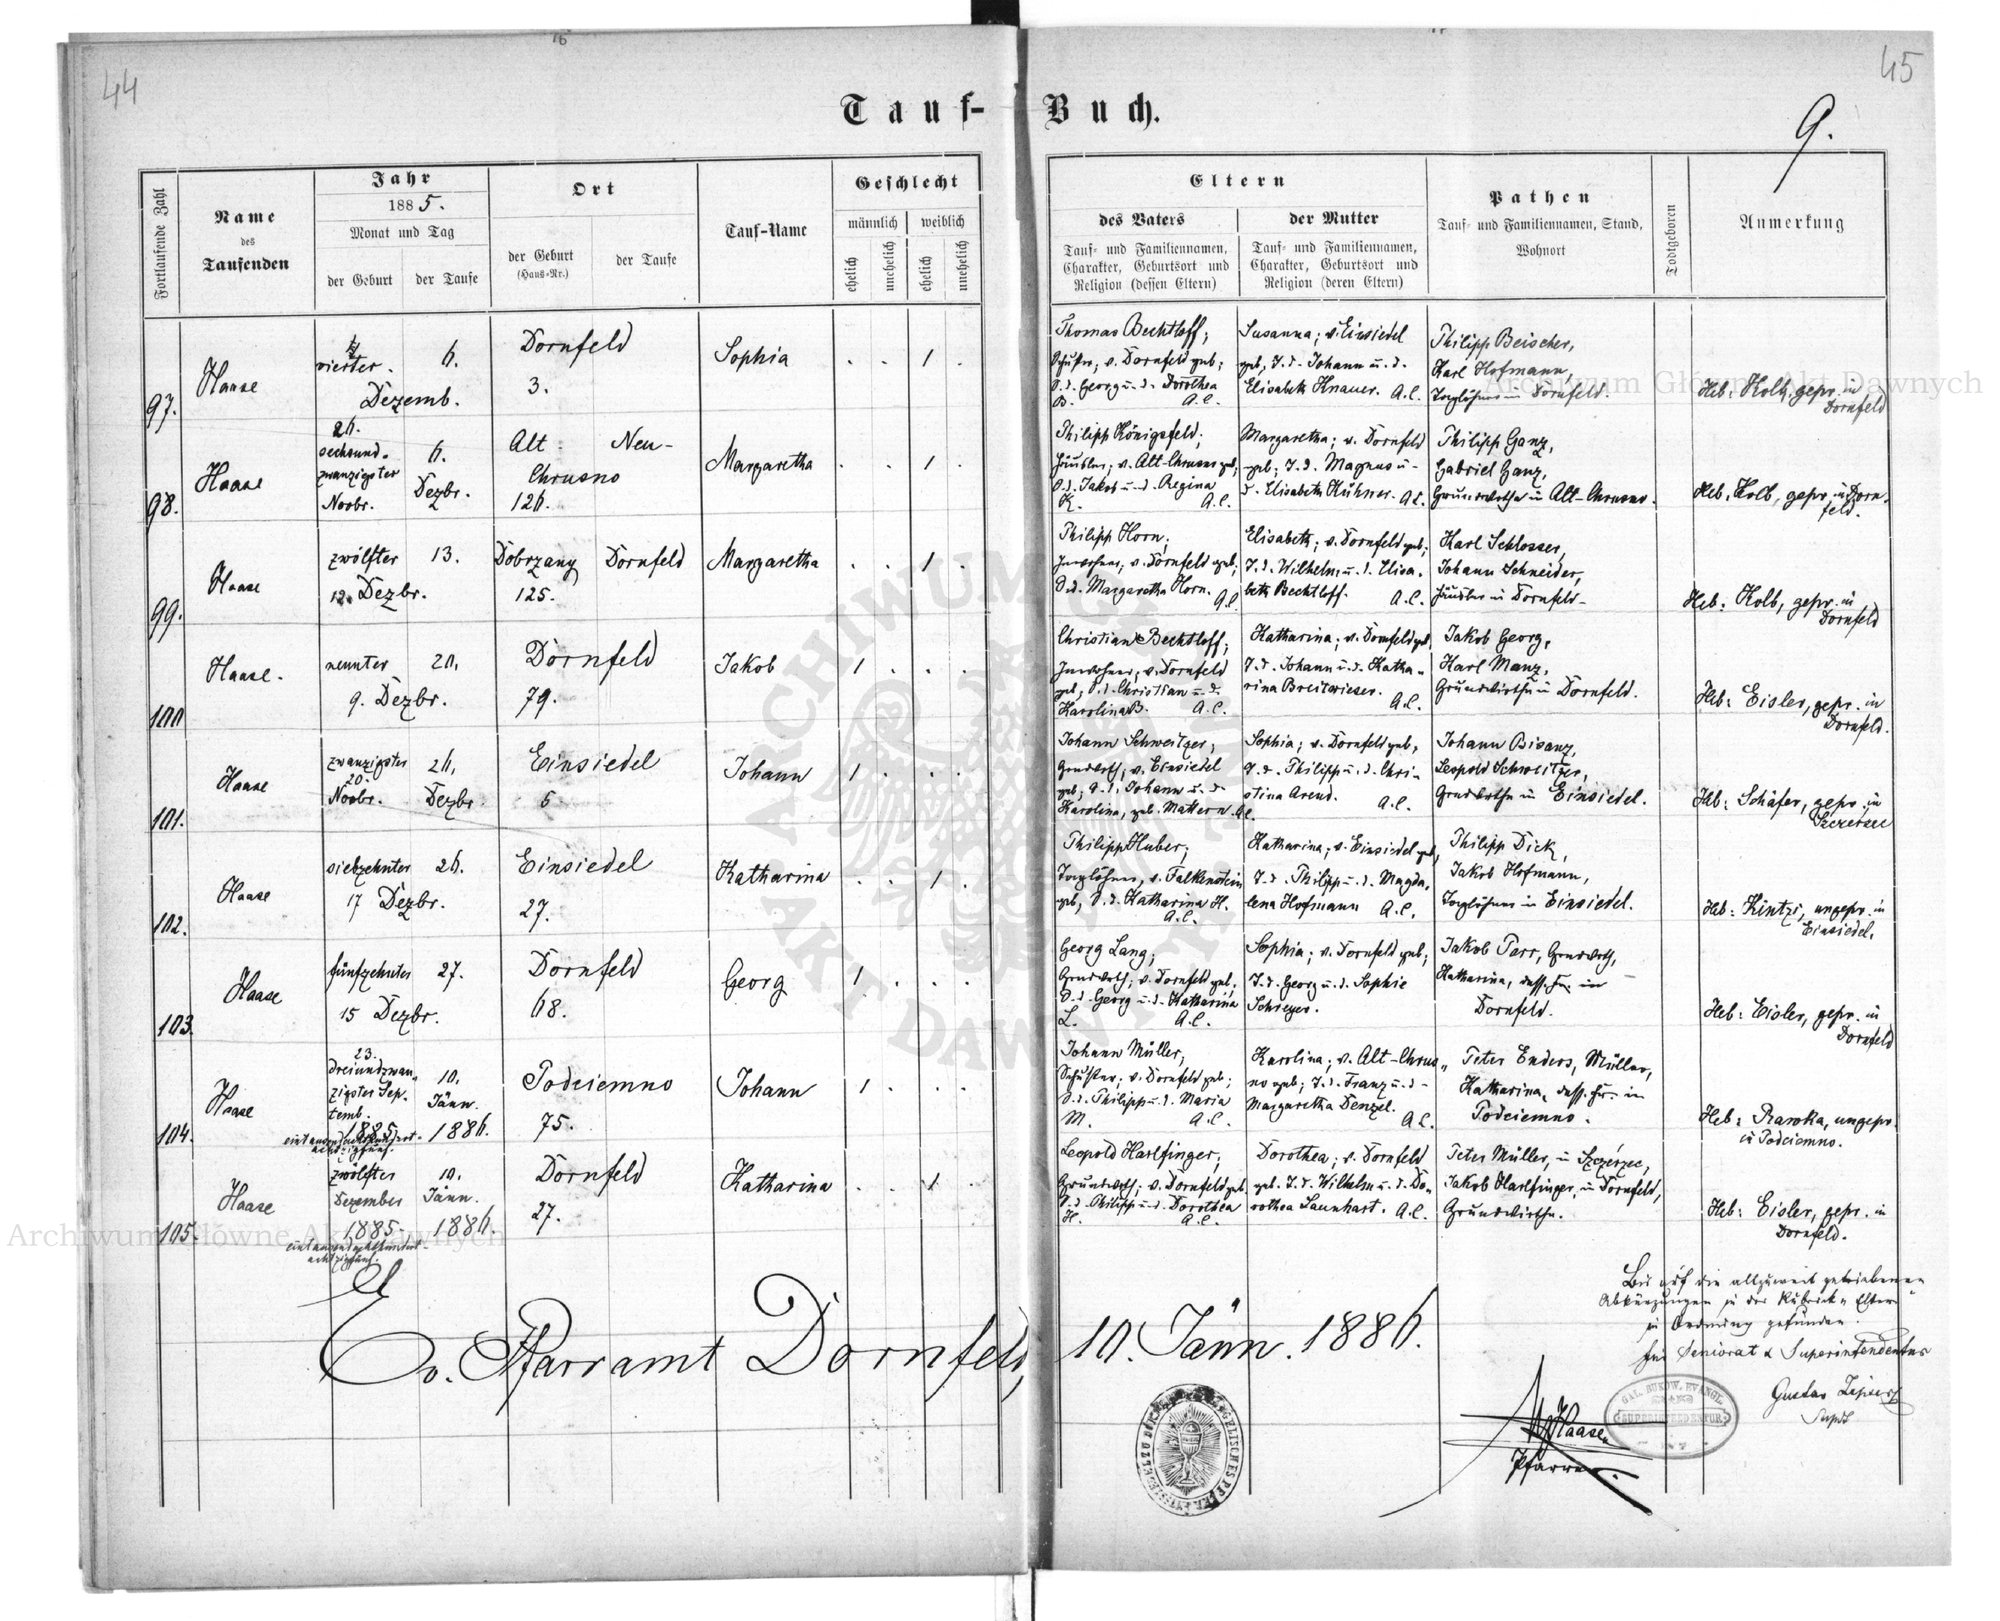 44
45
Tauf-Buch.
9.
Fortlaufende Zahl
Name des Taufenden
Jahr 1885.
Monat und Tag
der Geburt
der Taufe
Ort
der Geburt (Haus-Nr.)
der Taufe
Tauf-Name
Geschlecht
männlich
weiblich
ehelich
unehelich
ehelich
unehelich
Eltern
des Vaters
Tauf- und Familiennamen, Charakter, Geburtsort und Religion (dessen Eltern)
der Mutter
Tauf- und Familiennamen, Charakter, Geburtsort und Religion (deren Eltern)
Pathen
Tauf- und Familiennamen, Stand, Wohnort
Todtgeboren
Anmerkung
97. Haase
vierter. 6.
Dezemb.
Dornfeld
3.
Sophia
. . 1 .
Thomas Bechtloff;
v. Dornfeld geb;
S. d. Georg u. d. Dorothea
B. A.C.
Susanna; v. Einsiedel
geb; T. d. Johann u. d.
Elisabeth Knauer. A.C.
Philipp Beischer,
Karl Hofmann,
Taglöhner in Dornfeld.
Heb: Kolb, gepr. in
Dornfeld
98. Haase
26.
sechsund-
zwanzigster
Novbr.
6.
Dezbr.
Alt- Neu-
Chrusno
126.
Margaretha
. . 1 .
Philipp Königsfeld;
Häusler; v. Alt-Chrusno geb;
S. d. Jakob u. d. Regina
K. A.C.
Margaretha; v. Dornfeld
geb; T. d. Magnus u.
d. Elisabeth Kühner. A.C.
Philipp Ganz,
Gabriel Ganz,
Grundwirthe in Alt-Chrusno.
Heb: Kolb, gepr. in Dorn-
feld.
99. Haase
zwölfter 13.
12. Dezbr.
Dobrzany Dornfeld
125.
Margaretha
. . 1 .
Philipp Horn;
Inwohner; v. Dornfeld geb;
S. d. Margaretha Horn. A.C.
Elisabeth; v. Dornfeld geb;
T. d. Wilhelm u. d. Elisa-
beth Bechtloff. A.C.
Karl Schlosser,
Johann Schneider,
Häusler in Dornfeld-
Heb: Kolb, gepr. in
Dornfeld
100 Haase.
neunter 20.
9. Dezbr.
Dornfeld
79.
Jakob
1 . . .
Christian Bechtloff;
Inwohner; v. Dornfeld
geb; S. d. Christian u. d.
Karolina B. A.C.
Katharina; v. Dornfeld geb;
T. d. Johann u. d. Katha-
rina Breitwieser. A.C.
Jakob Georg,
Karl Manz,
Grundwirthe in Dornfeld.
Heb: Eisler, gepr. in
Dornfeld.
101. Haase
zwanzigster 26.
20.
Novbr. Dezbr.
Einsiedel
6
Johann
1 . . .
Johann Schweitzer;
Grundwirth; v. Einsiedel
geb; S. d. Johann u. d.
Karolina, geb. Mattern. A.C.
Sophia; v. Dornfeld geb;
T. d. Philipp u. d. Chri-
stina Arend. A.C.
Johann Bisanz,
Leopold Schweitzer,
Grundwirthe in Einsiedel.
Heb: Schäfer, gepr. in
Szczerzec
102. Haase
siebzehnter 26.
17 Dezbr.
Einsiedel
27.
Katharina
. . 1 .
Philipp Huber;
Taglöhner, v. Falkenstein
geb; S. d. Katharina H.
A.C.
Katharina; v. Einsiedel geb;
T. d. Philipp u. d. Magda-
lena Hofmann A.C.
Philipp Dick,
Jakob Hofmann,
Taglöhner in Einsiedel.
Heb: Kintzi, ungepr. in
Einsiedel.
103. Haase
fünfzehnter 27.
15 Dezbr.
Dornfeld
68.
Georg
1 . . .
Georg Lang;
Grundwirth; v. Dornfeld geb;
S. d. Georg u. d. Katharina
L. A.C.
Sophia; v. Dornfeld geb;
T. d. Georg u. d. Sophie
Schreyer.
Jakob Parr, Grundwirth,
Katharina, dess. Fr. in
Dornfeld.
Heb: Eisler, gepr. in
Dornfeld
104. Haase
23.
dreiundzwan-
zigster Sep-
temb.
1885.
10.
Jänn.
1886.
Podciemno
75.
Johann
1 . . .
Johann Müller;
Schuster; v. Dornfeld geb;
S. d. Philipp u. d. Maria
M. A.C.
Karolina; v. Alt-Chrus-
no geb; T. d. Franz u. d.
Margaretha Denzel. A.C.
Peter Enders, Müller,
Katharina, dess. Fr. in
Podciemno.
Heb: Rawka, ungepr.
in Podciemno.
105. Haase
zwölfter 10.
Dezember Jänn.
1885. 1886.
eintausendachthundert-
achtzigfünf.
Dornfeld
27.
Katharina
. . 1 .
Leopold Harlfinger;
Grundwirth; v. Dornfeld geb.
S. d. Philipp u. d. Dorothea
H. A.C.
Dorothea; v. Dornfeld
geb. T. d. Wilhelm u. d. Do-
rothea Launhart. A.C.
Peter Müller, in Szczerzec,
Jakob Harlfinger, in Dornfeld,
Grundwirthe.
Heb: Eisler, gepr. in
Dornfeld.
Ev. Pfarramt Dornfeld, 10. Jänn. 1886.
Bis auf die allzuweit getriebenen
Abkürzungen in der Rubrik "Eltern"
in Ordnung gefunden.
Für Seniorat & Superintendentur
Haase
Pfarrer.
GAL. BUKOW. EVANGL.
SUPERINTENDENTUR
Archiwum Główne Akt Dawnych
Archiwum Główne Akt Dawnych